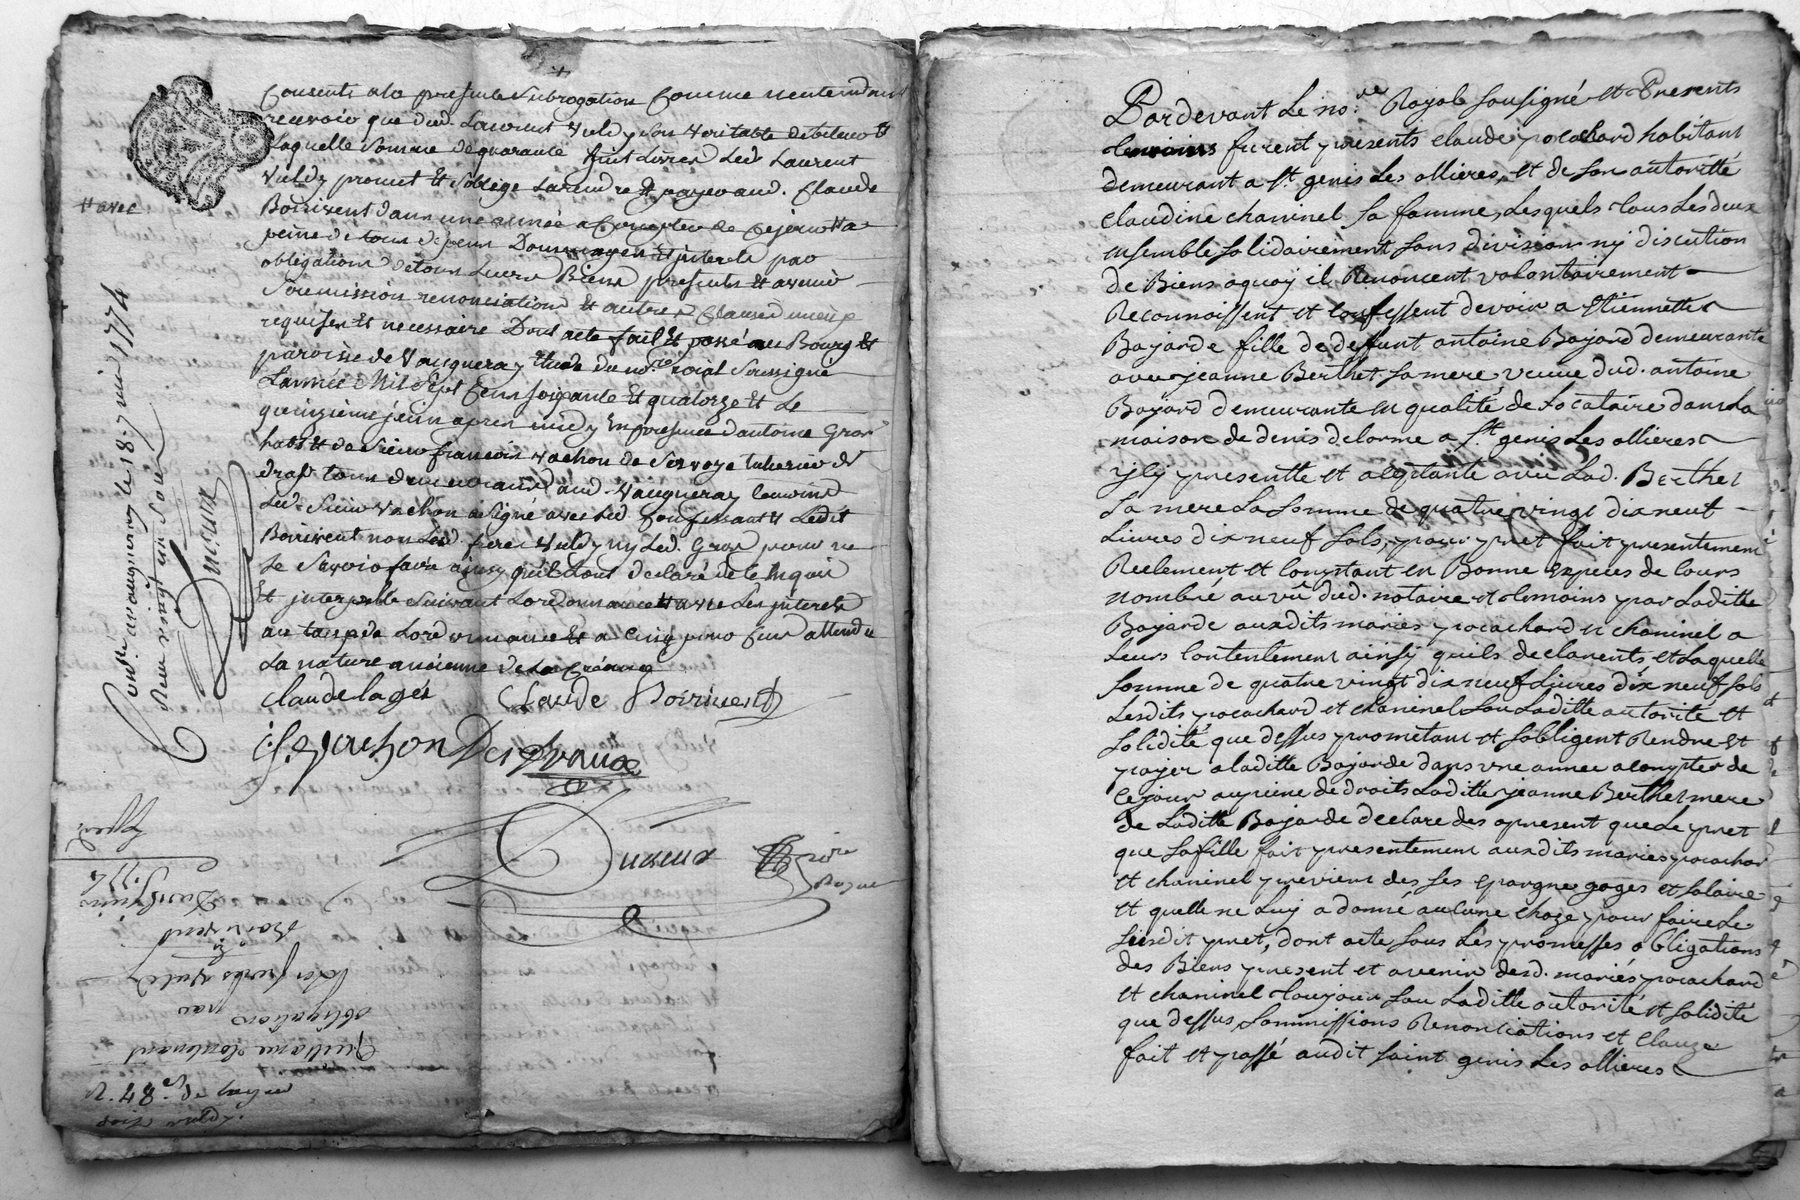 Consents a la presente subrogation comme nentendant
recevoir que dud. Laurent Vuldy son veritable debiteur Et
Laquelle somme de quarante huit Livres Led Laurent
Vuldy promet Et soblige La rendre Et payer aud. Claude
Boirivent dans une année a Compter de Ce jour
# avec
peine de tous depens Dommages Et interets par
obligation de tous Leurs Biens presents Et avenir
Soumission renonciation Et autres Clauses
requises Et necessaire Dont acte fait Et passé au Bourg Et
paroisse de Vaugneray Etude du no.re roial Soussigné
L'année Mil Sept Cens soixante Et quatorze Et Le
quinzieme juin apres midy En presence d'antoine Gros
habt Et de Sieur françois Vachon
tous demeurants aud. Vaugneray temoins
Led. Sieur Vachon a signé avec Led Confessant Et Ledit
Boirivent non Led. freres Vuldy ny Led. Gros pour ne
Le Savoir faire ainsy qu'ils L'ont declaré de ce Enquis
Et interpellé Suivant Lordonnance # avec Les jnterets
au taux de Lordonnance Et a Cinq pour Cent attendu
La nature ancienne de La Créance
Claude lages Claude Boirivent
f. Vachon
Ducreux
Con.lle a vaugneray le 18.e juin 1774
Reçu vingt un Sous
Ducreux
Quittance
obligation
par
Les freres Vuldy
a
Boirivent
Du 15 juin
1774
Pardevant Le no.re Royal sousigné et Presents
temoins furent presents claude pocachard habitant
demeurant a st. genis Les ollieres, et de son autorité
claudine chaninel sa famme, Lesquels tous Les deux
ensemble solidairement sans division ny discution
de Biens aquoy ils Renoncent volontairement
Reconnoissent et confessent devoir a Etiennette
Bajarde fille de deffunt antoine Bajard demeurante
avec jeanne Berthet sa mere, veuve dud. antoine
Bajard demeurante en qualité de Locataire dans La
maison de denis delorme a st. genis Les ollieres
jcy presentte et aceptante avec Lad. Berthet
La mere La somme de quatre vingt dix neuf
Livres dix neuf sols, pour pret fait presentement
Reelement et comptant en Bonne Espece de cours
nombré au vû dud. notaire et temoins par Laditte
Bajarde auxdits mariés pocachard et chaninel a
Leurs contentement ainsy quils declarents et Laquelle
somme de quatre vingt dix neuf Livres dix neuf sols
Lesdits pocachard et chaninel sou Laditte autorité et
solidité que dessus promettant et sobligent Rendre et
payer a laditte Bajarde dans une année a compter de
ce jour au peine de droits Laditte jeanne Berthet mere
de Laditte Bajarde declare des apresent que Le pret
que sa fille fait presentement auxdits mariés pocachar
et chaninel provient des ses epargne gages et salaire
et quelle ne Luy a donné aucune choze pour faire Le
susdit pret, dont acte sous Les promesses obligations
des Biens present et avenir desd. mariés pocachard
et chaninel toujours sou Laditte autorité et solidité
que dessus, sommissions Renontiations et clauze
fait et passé audit saint genis Les ollieres